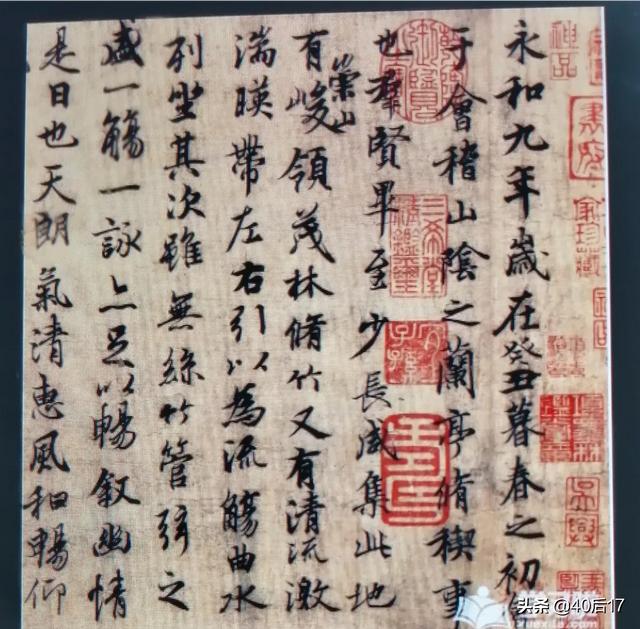 神品
永和九年歲在癸丑暮春之初
于會稽山陰之蘭亭脩稧事
也羣賢畢至少長咸集此地
有崇山峻領茂林脩竹又有清流激
湍暎帶左右引以為流觴曲水
列坐其次雖無絲竹管弦之
盛一觴一詠亦足以暢敘幽情
是日也天朗氣清惠風和暢仰
三希堂精鑑璽
宜子孫
头条 @40后17